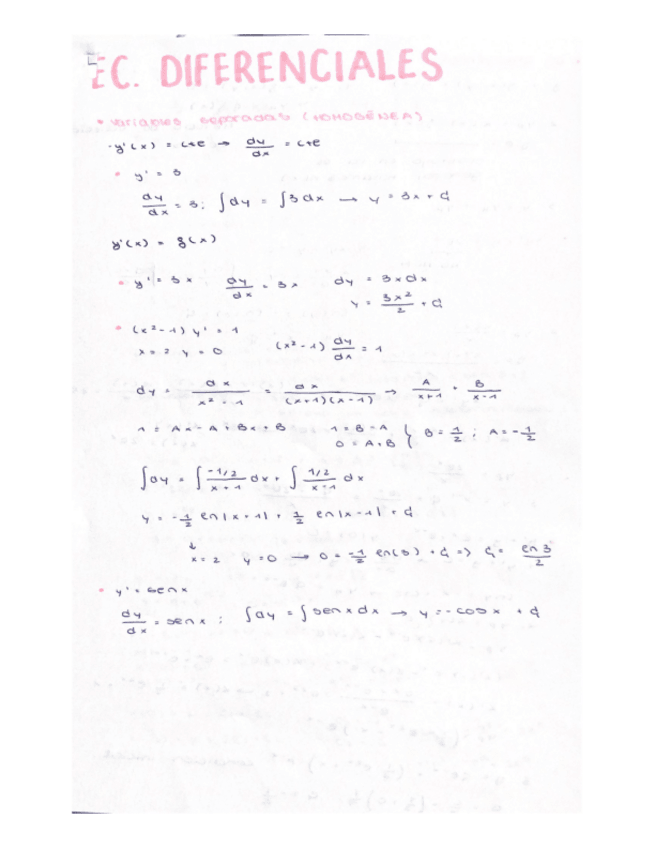 EC. DIFERENCIALES
• variables separadas (HOMOGÉNEA)
· y'(x) = cte → dy/dx = cte
• y' = 3
dy/dx = 3; ∫dy = ∫3dx → y = 3x + C
y'(x) = g(x)
• y' = 3x dy/dx = 3x dy = 3xdx
y = 3x²/2 + C
• (x²-1) y' = 1
x = 2 y = 0 (x²-1) dy/dx = 1
dy = dx/(x²-1) = dx/((x+1)(x-1)) → A/(x+1) + B/(x-1)
1 = Ax - A + Bx + B 1 = B - A 0 = A + B { B = 1/2 ; A = -1/2
∫dy = ∫ (-1/2)/(x+1) dx + ∫ (1/2)/(x-1) dx
y = -1/2 ln|x+1| + 1/2 ln|x-1| + C
↓
x = 2 y = 0 → 0 = -1/2 ln(3) + C => C = ln 3/2
• y' = sen x
dy/dx = sen x ; ∫dy = ∫sen x dx → y = -cos x + C